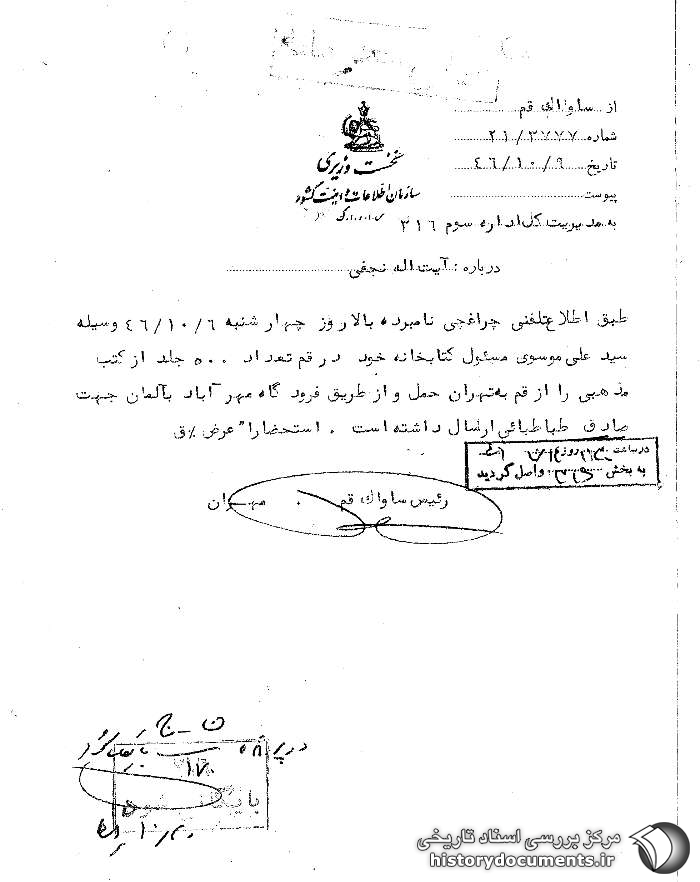 از ساواک قم
شماره ۲۱/۳۷۷۷
تاریخ ۴۶/۱۰/۹
پیوست
نخست وزیری
سازمان اطلاعات و امنیت کشور
س.ا.و.ا.ک
به مدیریت کل اداره سوم ۳۱۶
درباره : آیت اله نجفی
طبق اطلاع تلفنی چراغچی نامبرده بالا روز چهار شنبه ۴۶/۱۰/۶ وسیله
سید علی موسوی مسئول کتابخانه خود در قم تعداد ۵۰۰ جلد از کتب
مذهبی را از قم به تهران حمل و از طریق فرودگاه مهرآباد بآلمان جهت
صادق طباطبائی ارسال داشته است . استحضارا" عرض /ق
در ساعت روز
به بخش واصل گردید
رئیس ساواک قم . مهران
ن - ج
در پرونده بایگانی شود
۱۷
مرکز بررسی اسناد تاریخی
historydocuments.ir